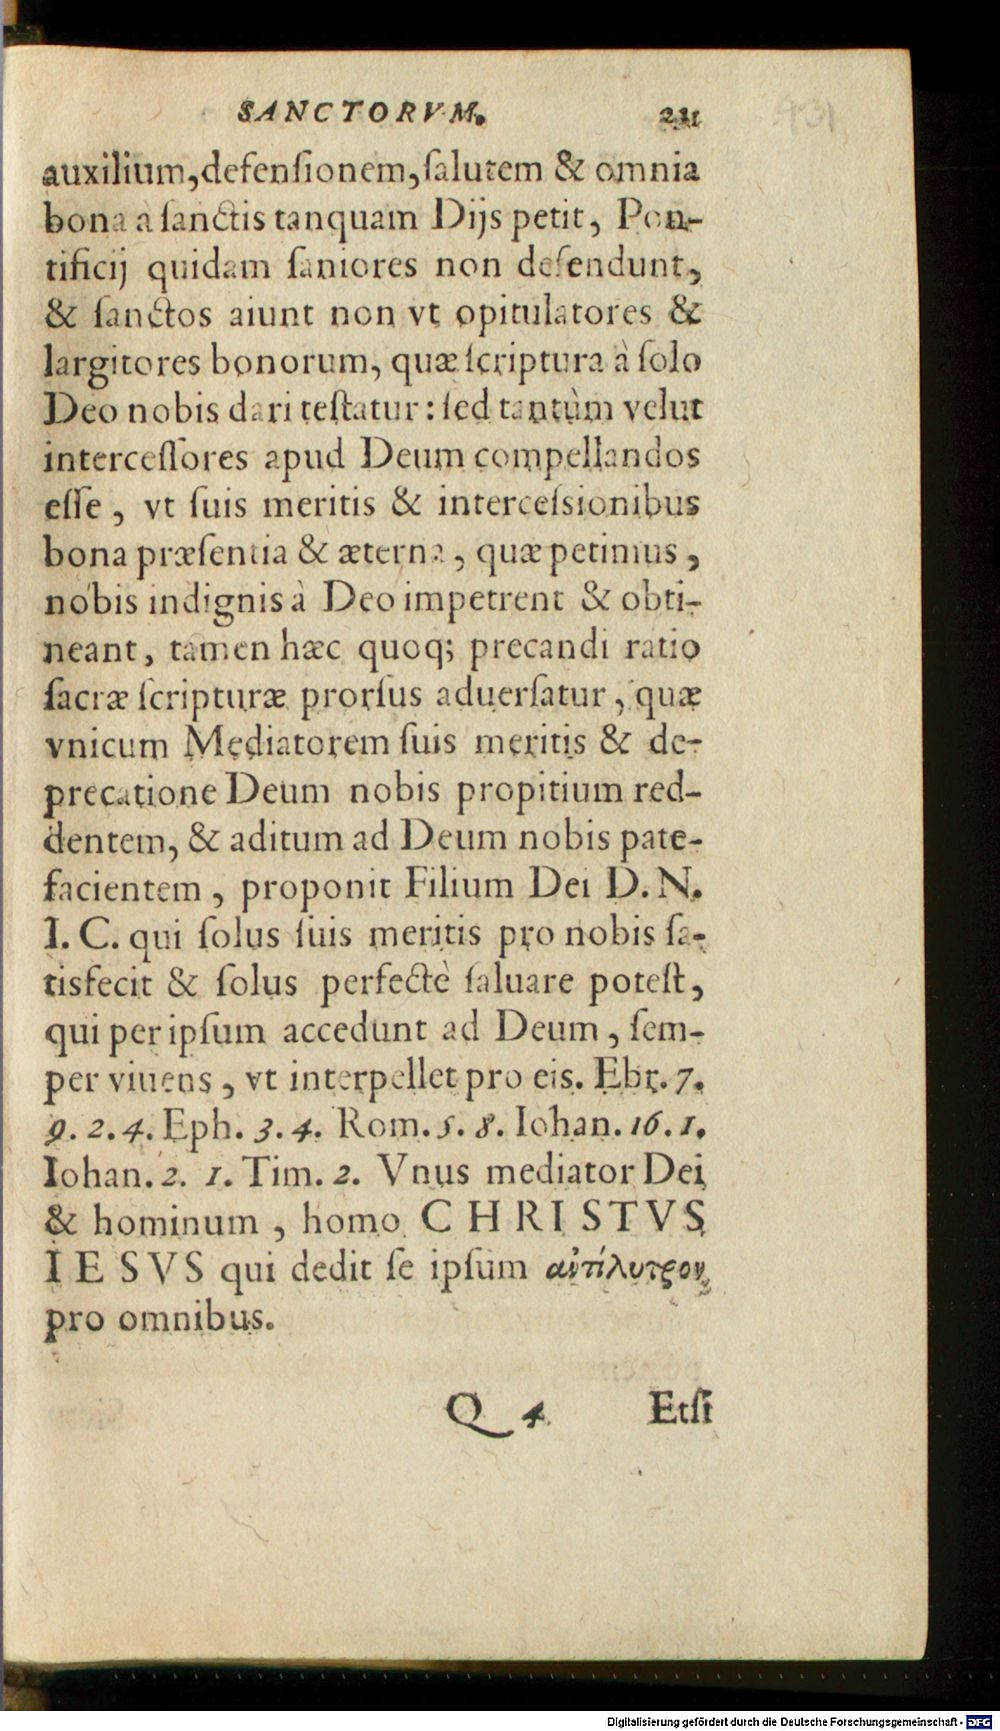 SANCTORVM. 211
auxilium, defenſionem, ſalutem & omnia
bona a ſanctis tanquam Dijs petit, Pon-
tificij quidam ſaniores non defendunt,
& ſanctos aiunt non vt opitulatores &
largitores bonorum, quæ ſcriptura à ſolo
Deo nobis dari teſtatur: ſed tantùm velut
interceſſores apud Deum compellandos
eſſe, vt ſuis meritis & interceſsionibus
bona præſentia & æterna, quæ petimus,
nobis indignis à Deo impetrent & obti-
neant, tamen hæc quoq; precandi ratio
ſacræ ſcripturæ prorſus aduerſatur, quæ
vnicum Mediatorem ſuis meritis & de-
precatione Deum nobis propitium red-
dentem, & aditum ad Deum nobis pate-
facientem, proponit Filium Dei D. N.
I. C. qui ſolus ſuis meritis pro nobis ſa-
tisfecit & ſolus perfectè ſaluare poteſt,
qui per ipſum accedunt ad Deum, ſem-
per viuens, vt interpellet pro eis. Ebr. 7.
9. 2. 4. Eph. 3. 4. Rom. 5. 8. Iohan. 16. 1.
Iohan. 2. 1. Tim. 2. Vnus mediator Dei
& hominum, homo CHRISTVS
IESVS qui dedit ſe ipſum ἀντίλυτρον
pro omnibus.
Q 4 Etſi
Digitalisierung gefördert durch die Deutsche Forschungsgemeinschaft - DFG